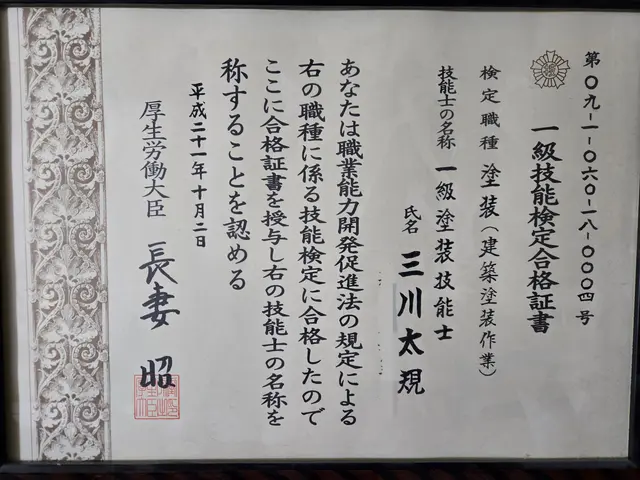 第〇九-1-〇六〇-1八-〇〇〇四号
一級技能検定合格証書
検定職種 塗装(建築塗装作業)
技能士の名称 一級塗装技能士
氏名 三川太規
あなたは職業能力開発促進法の規定による
右の職種に係る技能検定に合格したので
ここに合格証書を授与し右の技能士の名称を
称することを認める
平成二十一年十月二日
厚生労働大臣 長妻 昭